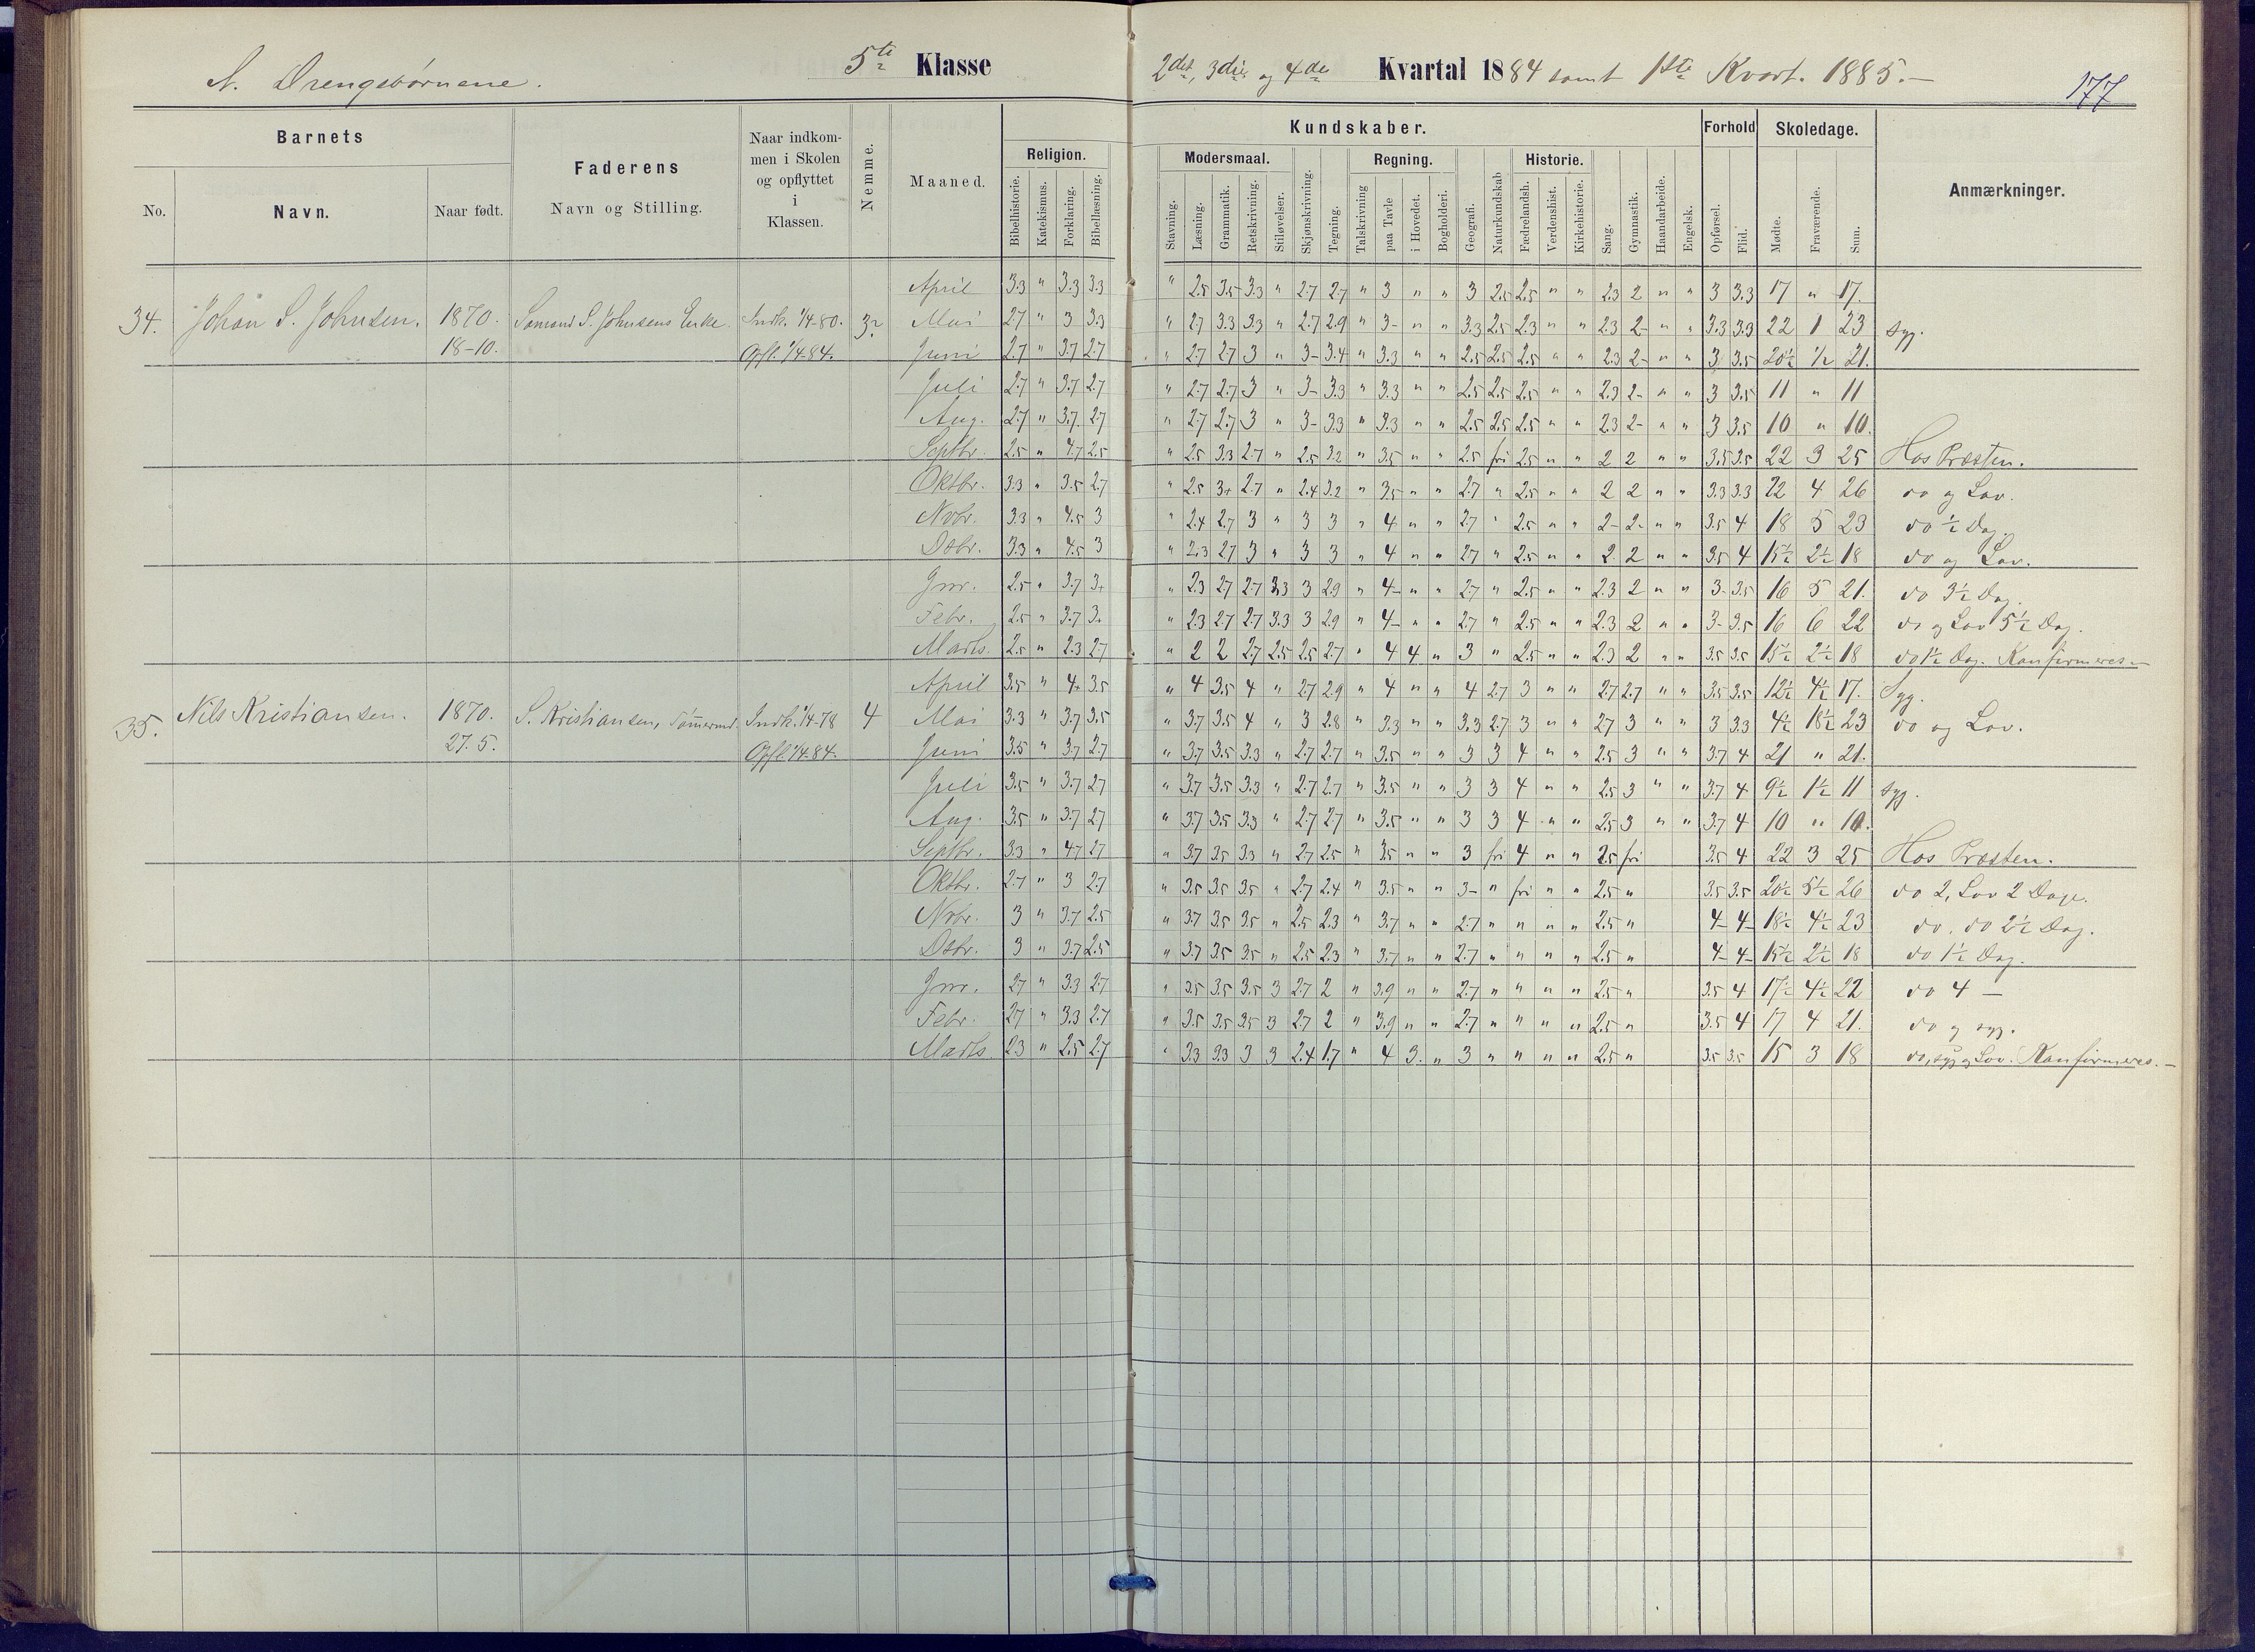 A. Drengebørnene.
5te Klasse
2det, 3die og 4de Kvartal 1884 samt 1ste Kvart. 1885.-
177
Barnets
Faderens
Naar indkom-
men i Skolen
og opflyttet
i
Klassen.
Nemme.
Maaned.
Kundskaber.
Forhold
Skoledage.
Anmærkninger.
No.
Navn.
Naar født.
Navn og Stilling.
Religion.
Modersmaal.
Regning.
Historie.
Bibelhistorie.
Katekismus.
Forklaring.
Bibellæsning.
Stavning.
Læsning.
Grammatik.
Retskrivning.
Stiløvelser.
Skjønskrivning.
Tegning.
Talskrivning
paa Tavle
i Hovedet.
Bogholderi.
Geografi.
Naturkundskab
Fædrelandsh.
Verdenshist.
Kirkehistorie.
Sang.
Gymnastik.
Haandarbeide.
Engelsk.
Opførsel.
Flid.
Mødte.
Fraværende.
Sum.
April 3.3 " 3.3 3.3 " 2.5 3.5 3.3 " 2.7 2.7 " 3 " " 3 2.5 2.5 " " 2.3 2 " " 3 3.3 17 " 17.
34. Johan S. Johnsen. 1870. Samund S. Johnsens Enke. Indk. 1/4-80. 3? Mai 2.7 " 3 3.3 " 2.7 3.3 3.3 " 2.7 2.9 " 3- " " 3.3 2.5 2.3 " " 2.3 2- " " 3.3 3.3 22 1 23 syg.
18-10. Opfl. 1/4-84. Juni 2.7 " 3.7 2.7 " 2.7 2.7 3 " 3- 3.4 " 3.3 " " 2.5 2.5 2.5 " " 2.3 2- " " 3 3.5 20½ ½ 21.
Juli 2.7 " 3.7 2.7 " 2.7 2.7 3 " 3- 3.3 " 3.3 " " 2.5 2.5 2.5 " " 2.3 2- " " 3 3.5 11 " 11
Aug. 2.7 " 3.7 2.7 " 2.7 2.7 3 " 3- 3.3 " 3.3 " " 2.5 2.5 2.5 " " 2.3 2- " " 3 3.5 10 " 10.
Septbr. 2.5 " 4.7 2.5 " 2.5 3.3 2.7 " 2.5 3.2 " 3.5 " " 2.5 fri 2.5 " " 2 2 " " 3.5 3.5 22 3 25 Hos Præsten.
Oktbr. 3.3 " 3.5 2.7 " 2.5 3+ 2.7 " 2.4 3.2 " 3.5 " " 2.7 " 2.5 " " 2 2 " " 3.3 3.3 22 4 26 do og Lov.
Nvbr. 3.3 " 4.5 3 " 2.4 2.7 3 " 3 3 " 4 " " 2.7 " 2.5 " " 2- 2- " " 3.5 4 18 5 23 do ½ Dag.
Dsbr. 3.3 " 4.5 3 " 2.3 2.7 3 " 3 3 " 4 " " 2.7 " 2.5 " " 2 2 " " 3.5 4 15½ 2½ 18 do og Lov.
Jnr. 2.5 " 3.7 3+ " 2.3 2.7 2.7 3.3 3 2.9 " 4- " " 2.7 " 2.5 " " 2.3 2 " " 3- 3.5 16 5 21. do 3½ Dag.
Febr. 2.5 " 3.7 3+ " 2.3 2.7 2.7 3.3 3 2.9 " 4- " " 2.7 " 2.5 " " 2.3 2 " " 3- 3.5 16 6 22 do og Lov 5½ Dag.
Marts. 2.5 " 2.3 2.7 " 2 2 2.7 2.5 2.5 2.7 " 4 4 " 3 " 2.5 " " 2.3 2 " " 3.5 3.5 15½ 2½ 18 do 1½ Dag. Konfirmeres.-
April 3.5 " 4+ 3.5 " 4 3.5 4 " 2.7 2.9 " 4 " " 4 2.7 3 " " 2.7 2.7 " " 3.5 3.5 12½ 4½ 17. Syg.
35. Nils Kristiansen. 1870. S. Kristiansen, Tømmermd. Indk. 1/4-78 4 Mai 3.3 " 3.7 3.5 " 3.7 3.5 4 " 3 2.8 " 3.3 " " 3.3 2.7 3 " " 2.7 3 " " 3 3.3 4½ 18½ 23 do og Lov.
27.5. Opfl. 1/4-84. Juni 3.5 " 3.7 2.7 " 3.7 3.5 3.3 " 2.7 2.7 " 3.5 " " 3 3 4 " " 2.5 3 " " 3.7 4 21 " 21.
Juli 3.5 " 3.7 2.7 " 3.7 3.5 3.3 " 2.7 2.7 " 3.5 " " 3 3 4 " " 2.5 3 " " 3.7 4 9½ 1½ 11 syg.
Aug. 3.5 " 3.7 2.7 " 3.7 3.5 3.3 " 2.7 2.7 " 3.5 " " 3 3 4 " " 2.5 3 " " 3.7 4 10 " 10.
Septbr. 3.3 " 4.7 2.7 " 3.7 3.5 3.3 " 2.7 2.5 " 3.5 " " 3 fri 4 " " 2.5 fri 3.5 4 22 3 25 Hos Præsten.
Oktbr. 2.7 " 3 2.7 " 3.5 3.5 3.5 " 2.7 2.4 " 3.5 " " 3- " fri " " 2.5 " 3.5 3.5 20½ 5½ 26 do 2, Lov 2 Dage.
Nvbr. 3 " 3.7 2.5 " 3.7 3.5 3.5 " 2.5 2.3 " 3.7 " " 2.7 " " " " 2.5 " 4- 4- 18½ 4½ 23 do. do 2½ Dag.
Dsbr. 3 " 3.7 2.5 " 3.7 3.5 3.5 " 2.5 2.3 " 3.7 " " 2.7 " " " " 2.5 " 4- 4- 15½ 2½ 18 do 1½ Dag.
Jnr. 2.7 " 3.3 2.7 " 3.5 3.5 3.5 3 2.7 2 " 3.9 " " 2.7 " " " " 2.5 " 3.5 4 17½ 4½ 22 do 4 -
Febr. 2.7 " 3.3 2.7 " 3.5 3.5 3.5 3 2.7 2 " 3.9 " " 2.7 " " " " 2.5 " 3.5 4 17 4 21. do og syg.
Marts. 2.3 " 2.5 2.7 " 3.3 3.3 3 3 2.4 1.7 " 4 3. " 3 " " " " 2.5 " 3.5 3.5 15 3 18 do, syg og Lov. Konfirmeres.-